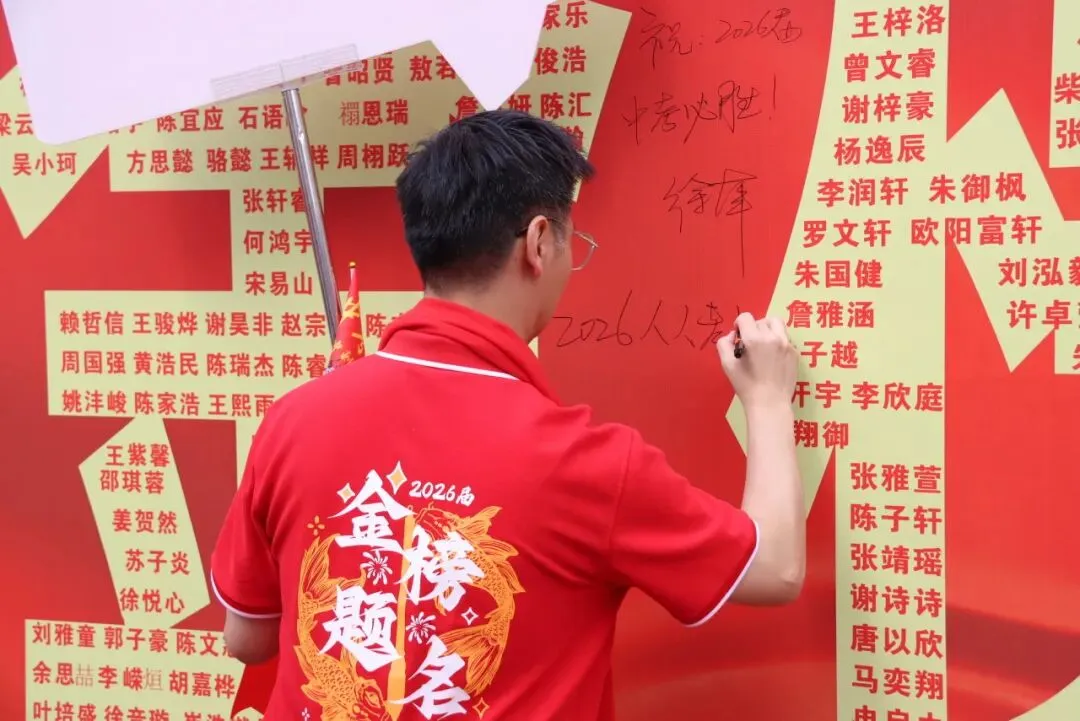 家乐
昭贤 敖若
俊浩
梁云
陈宜应 石语
禤恩瑞
妍 陈汇
吴小珂
方思懿 骆懿 王 祥 周栩跃
张轩睿
何鸿宇
宋易山
赖哲信 王骏烨 谢昊非 赵宗 陈
周国强 黄浩民 陈瑞杰 陈睿
姚沣峻 陈家浩 王熙雨
王紫馨
邵琪蓉
姜贺然
苏子炎
徐悦心
刘雅童 郭子豪 陈文
余思喆 李嵘烜 胡嘉桦
叶培盛 徐音璇
祝:2026届
中考必胜!
2026人人考
2026届
金榜题名
王梓洛
曾文睿
谢梓豪
杨逸辰
李润轩 朱御枫
罗文轩 欧阳富轩
朱国健
刘泓毅
詹雅涵
许卓
子越
轩宇 李欣庭
翔御
张雅萱
陈子轩
张靖瑶
谢诗诗
唐以欣
马奕翔
柴
张